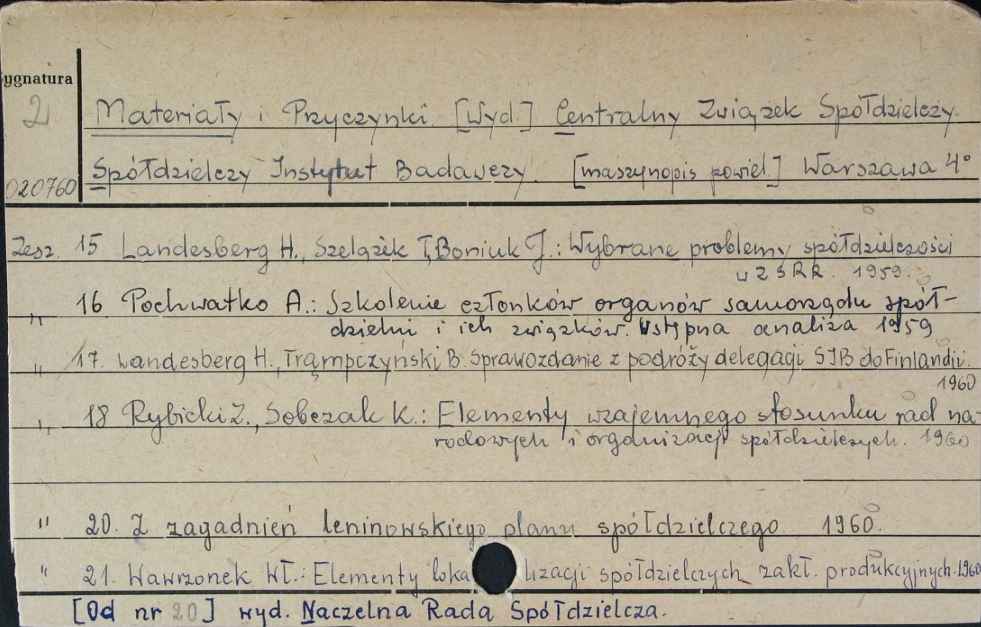 ygnatura
2
Materiały i Przyczynki [Wyd.] Centralny Związek Spółdzielczy.
Spółdzielczy Instytut Badawczy. [maszynopis powiel.] Warszawa 4°
020760
Zesz. 15 Landesberg H., Szelążek T., Boniuk J.: Wybrane problemy spółdzielczości
w ZSRR. 1959.
„ 16 Pochwatko A.: Szkolenie członków organów samorządu spół-
dzielni i ich związków. Wstępna analiza 1959
„ 17. Landesberg H., Trąmpczyński B. Sprawozdanie z podróży delegacji SIB do Finlandii.
1960
„ 18 Rybicki Z., Sobczak K.: Elementy wzajemnego stosunku rad na-
rodowych i organizacji spółdzielczych. 1960
" 20. Z zagadnień leninowskiego planu spółdzielczego 1960.
" 21. Wawrzonek Wł.: Elementy loka lizacji spółdzielczych zakł. produkcyjnych. 1960
[Od nr 20] wyd. Naczelna Rada Spółdzielcza.